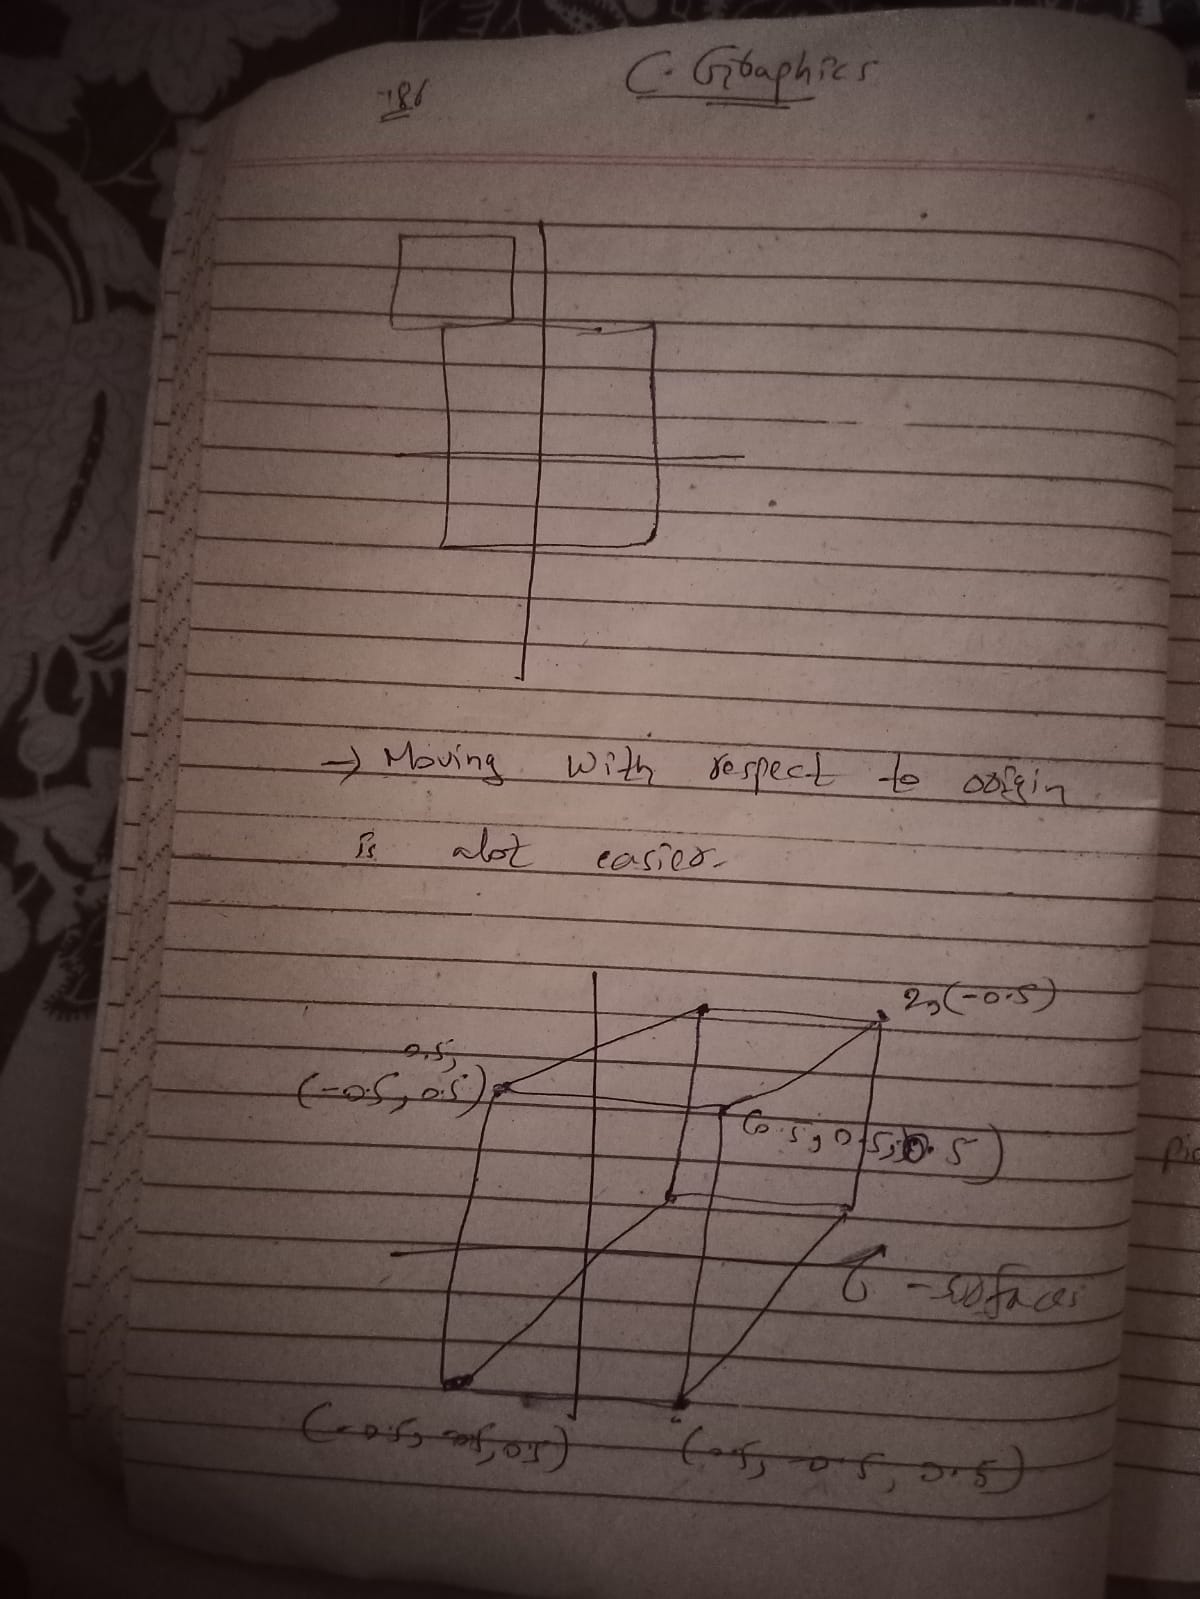 C. Graphics
→ Moving with respect to origin
is alot easier.
2,(-0.5)
0.5,
(-0.5, 0.5)
(0.5, 0.5, 0.5)
6 - surfaces
(-0.5, -0.5, 0.5)
(0.5, -0.5, 0.5)